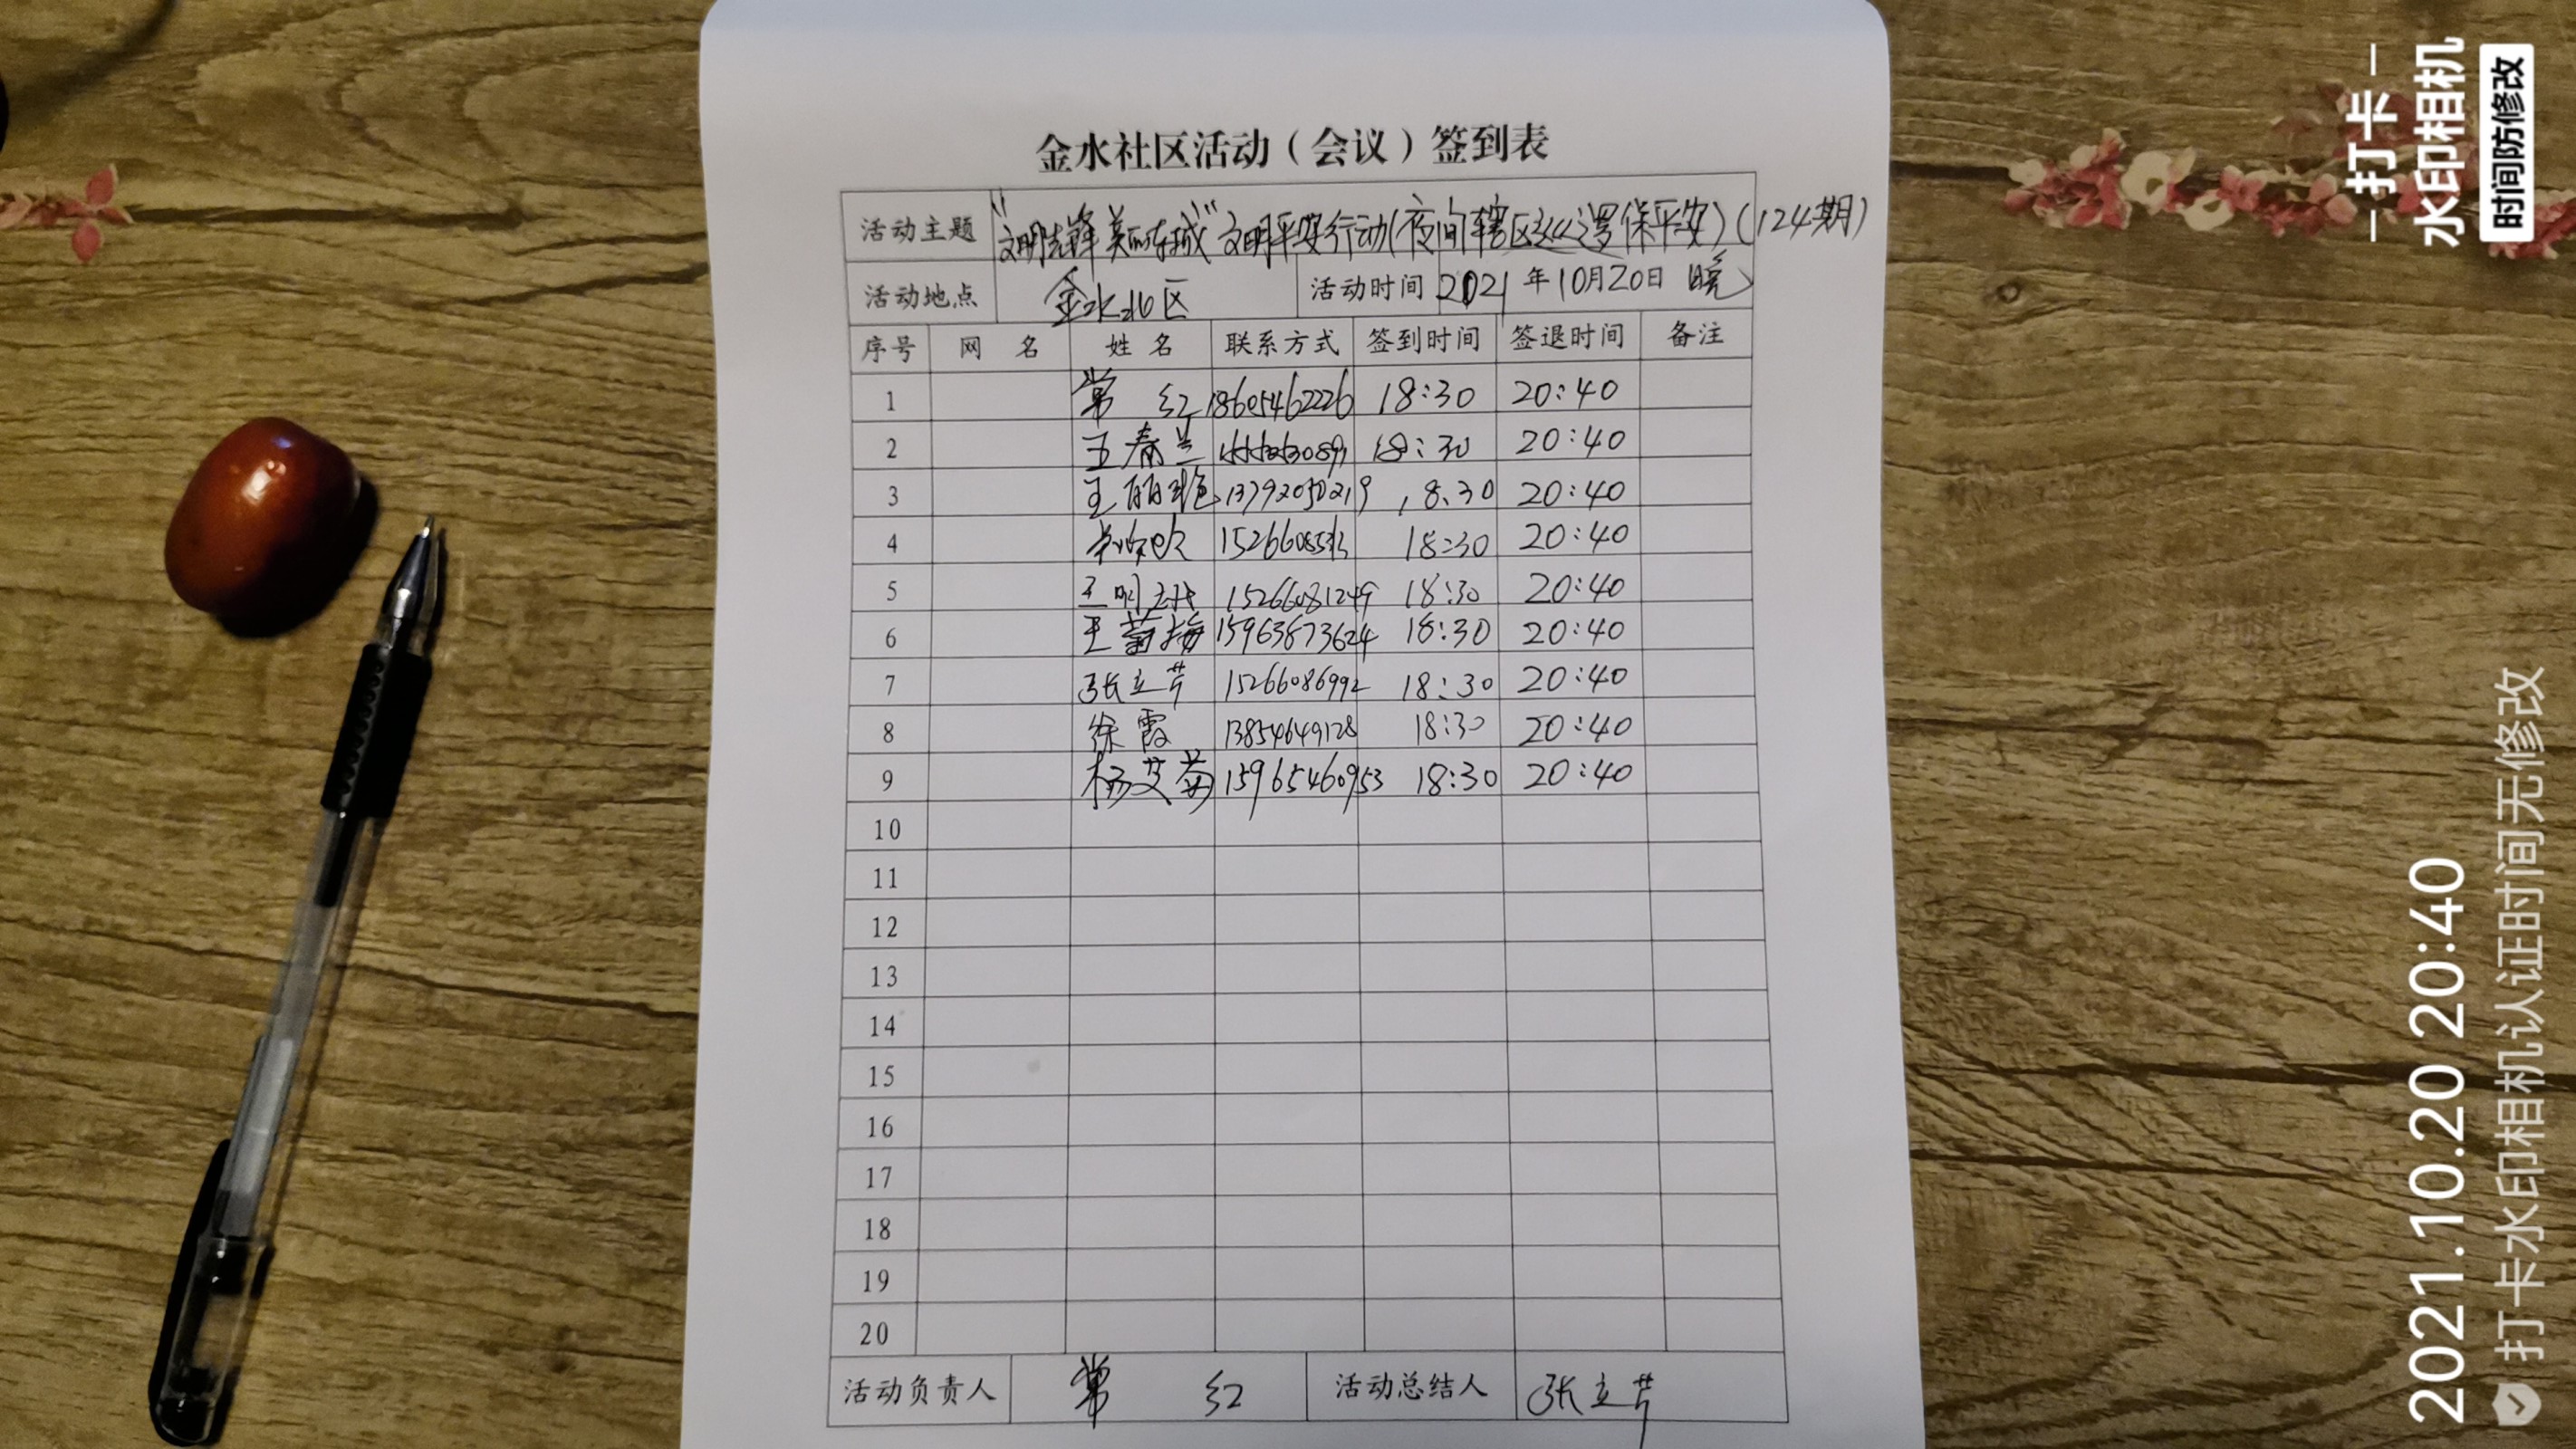 金水社区活动（会议）签到表
活动主题 "文明先锋 美丽东城"文明平安行动(夜间辖区巡逻保平安)(124期)
活动地点 金水北区 活动时间 2021年10月20日 晚
序号 网 名 姓 名 联系方式 签到时间 签退时间 备注
1 常 红 18605462226 18:30 20:40
2 王春兰 18:30 20:40
3 王丽艳 13792050219 18.30 20:40
4 18:30 20:40
5 王明 15266081249 18:30 20:40
6 王菊梅 15963873624 18:30 20:40
7 张立芹 15266086992 18:30 20:40
8 徐霞 13854649128 18:30 20:40
9 杨艾菊 15965460953 18:30 20:40
10
11
12
13
14
15
16
17
18
19
20
活动负责人 常 红 活动总结人 张立芹
打卡
水印相机
时间防修改
2021.10.20 20:40
打卡水印相机认证时间无修改